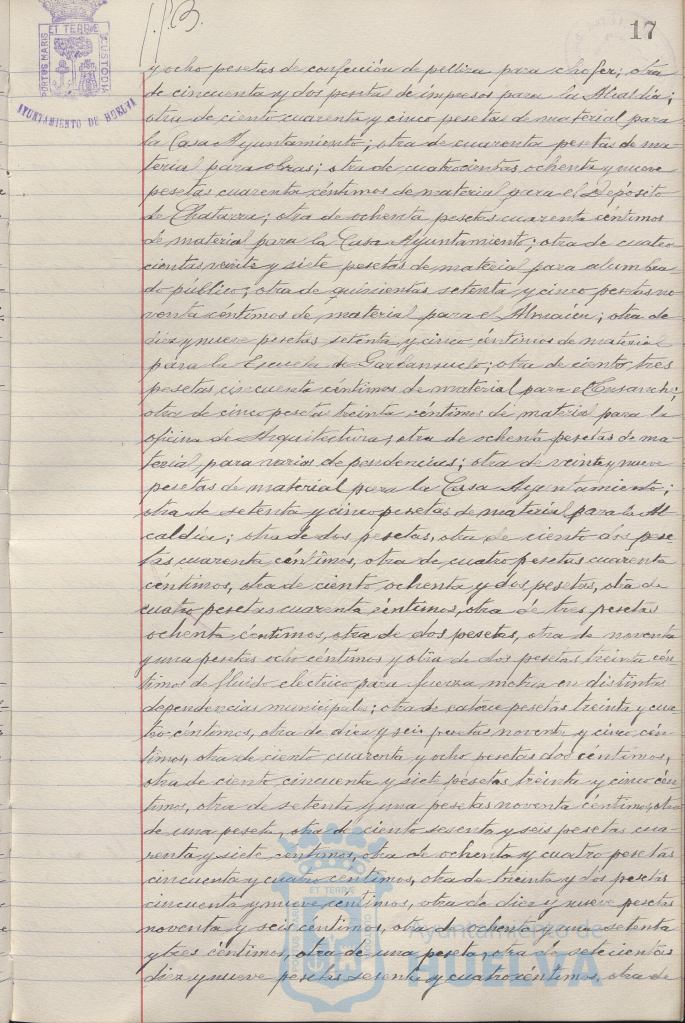 17
PORTUS MARIS ET TERRÆ CUSTODIA
AYUNTAMIENTO DE HUELVA
y ocho pesetas de confección de pelliza para chofer; otra
de cincuenta y dos pesetas de impresos para la Alcaldía;
otra de ciento cuarenta y cinco pesetas de material para
la Casa Ayuntamiento; otra de cuarenta pesetas de ma-
terial para obras; otra de cuatrocientas ochenta y nueve
pesetas cuarenta céntimos de material para el Depósito
de Chatarra; otra de ochenta pesetas cuarenta céntimos
de material para la Casa Ayuntamiento; otra de cuatro
cientas veinte y siete pesetas de material para alumbra
do público; otra de quinientas setenta y cinco pesetas no
venta céntimos de material para el Almacén; otra de
diez y nueve pesetas setenta y cinco céntimos de material
para la Escuela de Garbanzuelo; otra de ciento tres
pesetas cincuenta céntimos de material para el Ensanche;
otra de cinco peseta treinta céntimos de material para la
oficina de Arquitectura; otra de ochenta pesetas de ma-
terial para varias dependencias; otra de veinte y nueve
pesetas de material para la Casa Ayuntamiento;
otra de setenta y cinco pesetas de material para la Al
caldía; otra de dos pesetas, otra de ciento dos pese
tas cuarenta céntimos, otra de cuatro pesetas cuarenta
céntimos, otra de ciento ochenta y dos pesetas, otra de
cuatro pesetas cuarenta céntimos, otra de tres pesetas
ochenta céntimos, otra de dos pesetas, otra de noventa
y una pesetas ocho céntimos y otra de dos pesetas treinta cén-
timos de fluido eléctrico para fuerza motriz en distintas
dependencias municipales; otra de catorce pesetas treinta y cua-
tro céntimos, otra de diez y seis pesetas noventa y cinco cén-
timos, otra de ciento cuarenta y ocho pesetas dos céntimos,
otra de ciento cincuenta y siete pesetas treinta y cinco cén-
timos, otra de setenta y una pesetas noventa céntimos, otra
de una peseta, otra de ciento sesenta y seis pesetas cua-
renta y siete céntimos, otra de ochenta y cuatro pesetas
cincuenta y cuatro céntimos, otra de treinta y dos pesetas
cincuenta y nueve céntimos, otra de diez y nueve pesetas
noventa y seis céntimos, otra de ochenta y una setenta
y tres céntimos, otra de una peseta, otra de setecientas
diez y nueve pesetas sesenta y cuatro céntimos, otra de
PORTUS MARIS ET TERRÆ CUSTODIA
Ayuntamiento de
HUELVA